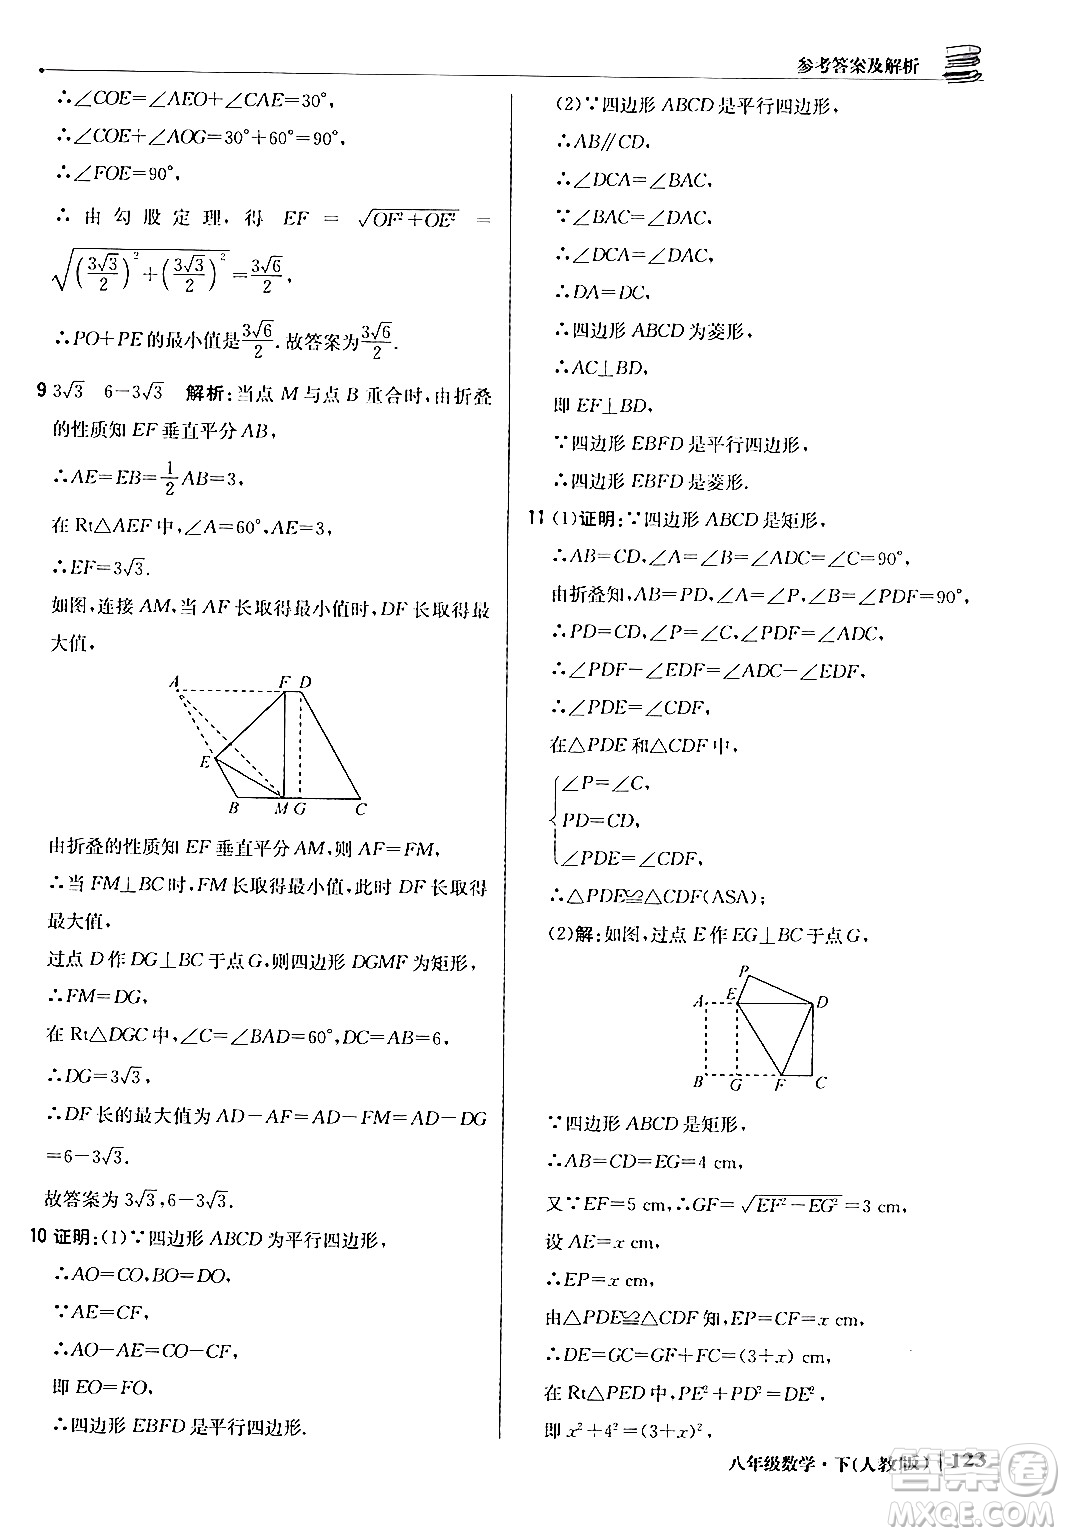 参考答案及解析
∴∠COE=∠AEO+∠CAE=30°,
∴∠COE+∠AOG=30°+60°=90°,
∴∠FOE=90°,
∴由勾股定理,得 EF=√(OF²+OE²)=
√((3√3/2)²+(3√3/2)²)=3√6/2,
∴PO+PE的最小值是3√6/2.故答案为3√6/2.
9 3√3 6-3√3 解析:当点 M 与点 B 重合时,由折叠
的性质知 EF 垂直平分 AB,
∴AE=EB=1/2AB=3,
在 Rt△AEF 中,∠A=60°,AE=3,
∴EF=3√3.
如图,连接 AM,当 AF 长取得最小值时,DF 长取得最
大值,
A F D
E
B M G C
由折叠的性质知 EF 垂直平分 AM,则 AF=FM,
∴当 FM⊥BC 时,FM 长取得最小值,此时 DF 长取得
最大值,
过点 D 作 DG⊥BC 于点 G,则四边形 DGMF 为矩形,
∴FM=DG,
在 Rt△DGC 中,∠C=∠BAD=60°,DC=AB=6,
∴DG=3√3,
∴DF 长的最大值为 AD-AF=AD-FM=AD-DG
=6-3√3.
故答案为 3√3,6-3√3.
10 证明:(1)∵四边形 ABCD 为平行四边形,
∴AO=CO,BO=DO,
∵AE=CF,
∴AO-AE=CO-CF,
即 EO=FO,
∴四边形 EBFD 是平行四边形.
(2)∵四边形 ABCD 是平行四边形,
∴AB∥CD,
∴∠DCA=∠BAC,
∵∠BAC=∠DAC,
∴∠DCA=∠DAC,
∴DA=DC,
∴四边形 ABCD 为菱形,
∴AC⊥BD,
即 EF⊥BD,
∵四边形 EBFD 是平行四边形,
∴四边形 EBFD 是菱形.
11 (1)证明:∵四边形 ABCD 是矩形,
∴AB=CD,∠A=∠B=∠ADC=∠C=90°,
由折叠知,AB=PD,∠A=∠P,∠B=∠PDF=90°,
∴PD=CD,∠P=∠C,∠PDF=∠ADC,
∴∠PDF-∠EDF=∠ADC-∠EDF,
∴∠PDE=∠CDF,
在△PDE 和△CDF 中,
∠P=∠C,
PD=CD,
∠PDE=∠CDF,
∴△PDE≌△CDF(ASA);
(2)解:如图,过点 E 作 EG⊥BC 于点 G,
P
A E D
B G F C
∵四边形 ABCD 是矩形,
∴AB=CD=EG=4 cm,
又∵EF=5 cm,∴GF=√(EF²-EG²)=3 cm,
设 AE=x cm,
∴EP=x cm,
由△PDE≌△CDF 知,EP=CF=x cm,
∴DE=GC=GF+FC=(3+x) cm,
在 Rt△PED 中,PE²+PD²=DE²,
即 x²+4²=(3+x)²,
八年级数学·下(人教版) 123
答案圈
MXQE.COM